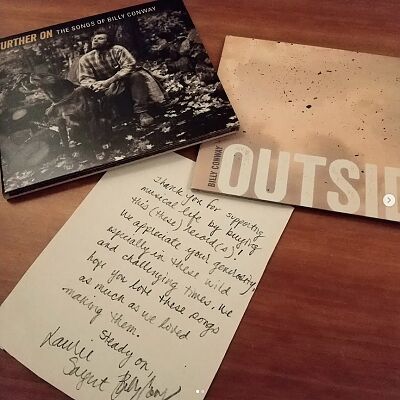 URTHER ON THE SONGS OF BILLY CONWAY
BILLY CONWAY
OUTSID
Thank you for supporting
musical life by buying
this (these) record(s).
We appreciate your generosity,
especially in these wild
and challenging times. We
hope you love these songs
as much as we loved
making them.
Steady on,
Laurie
Sargent Billy Conway